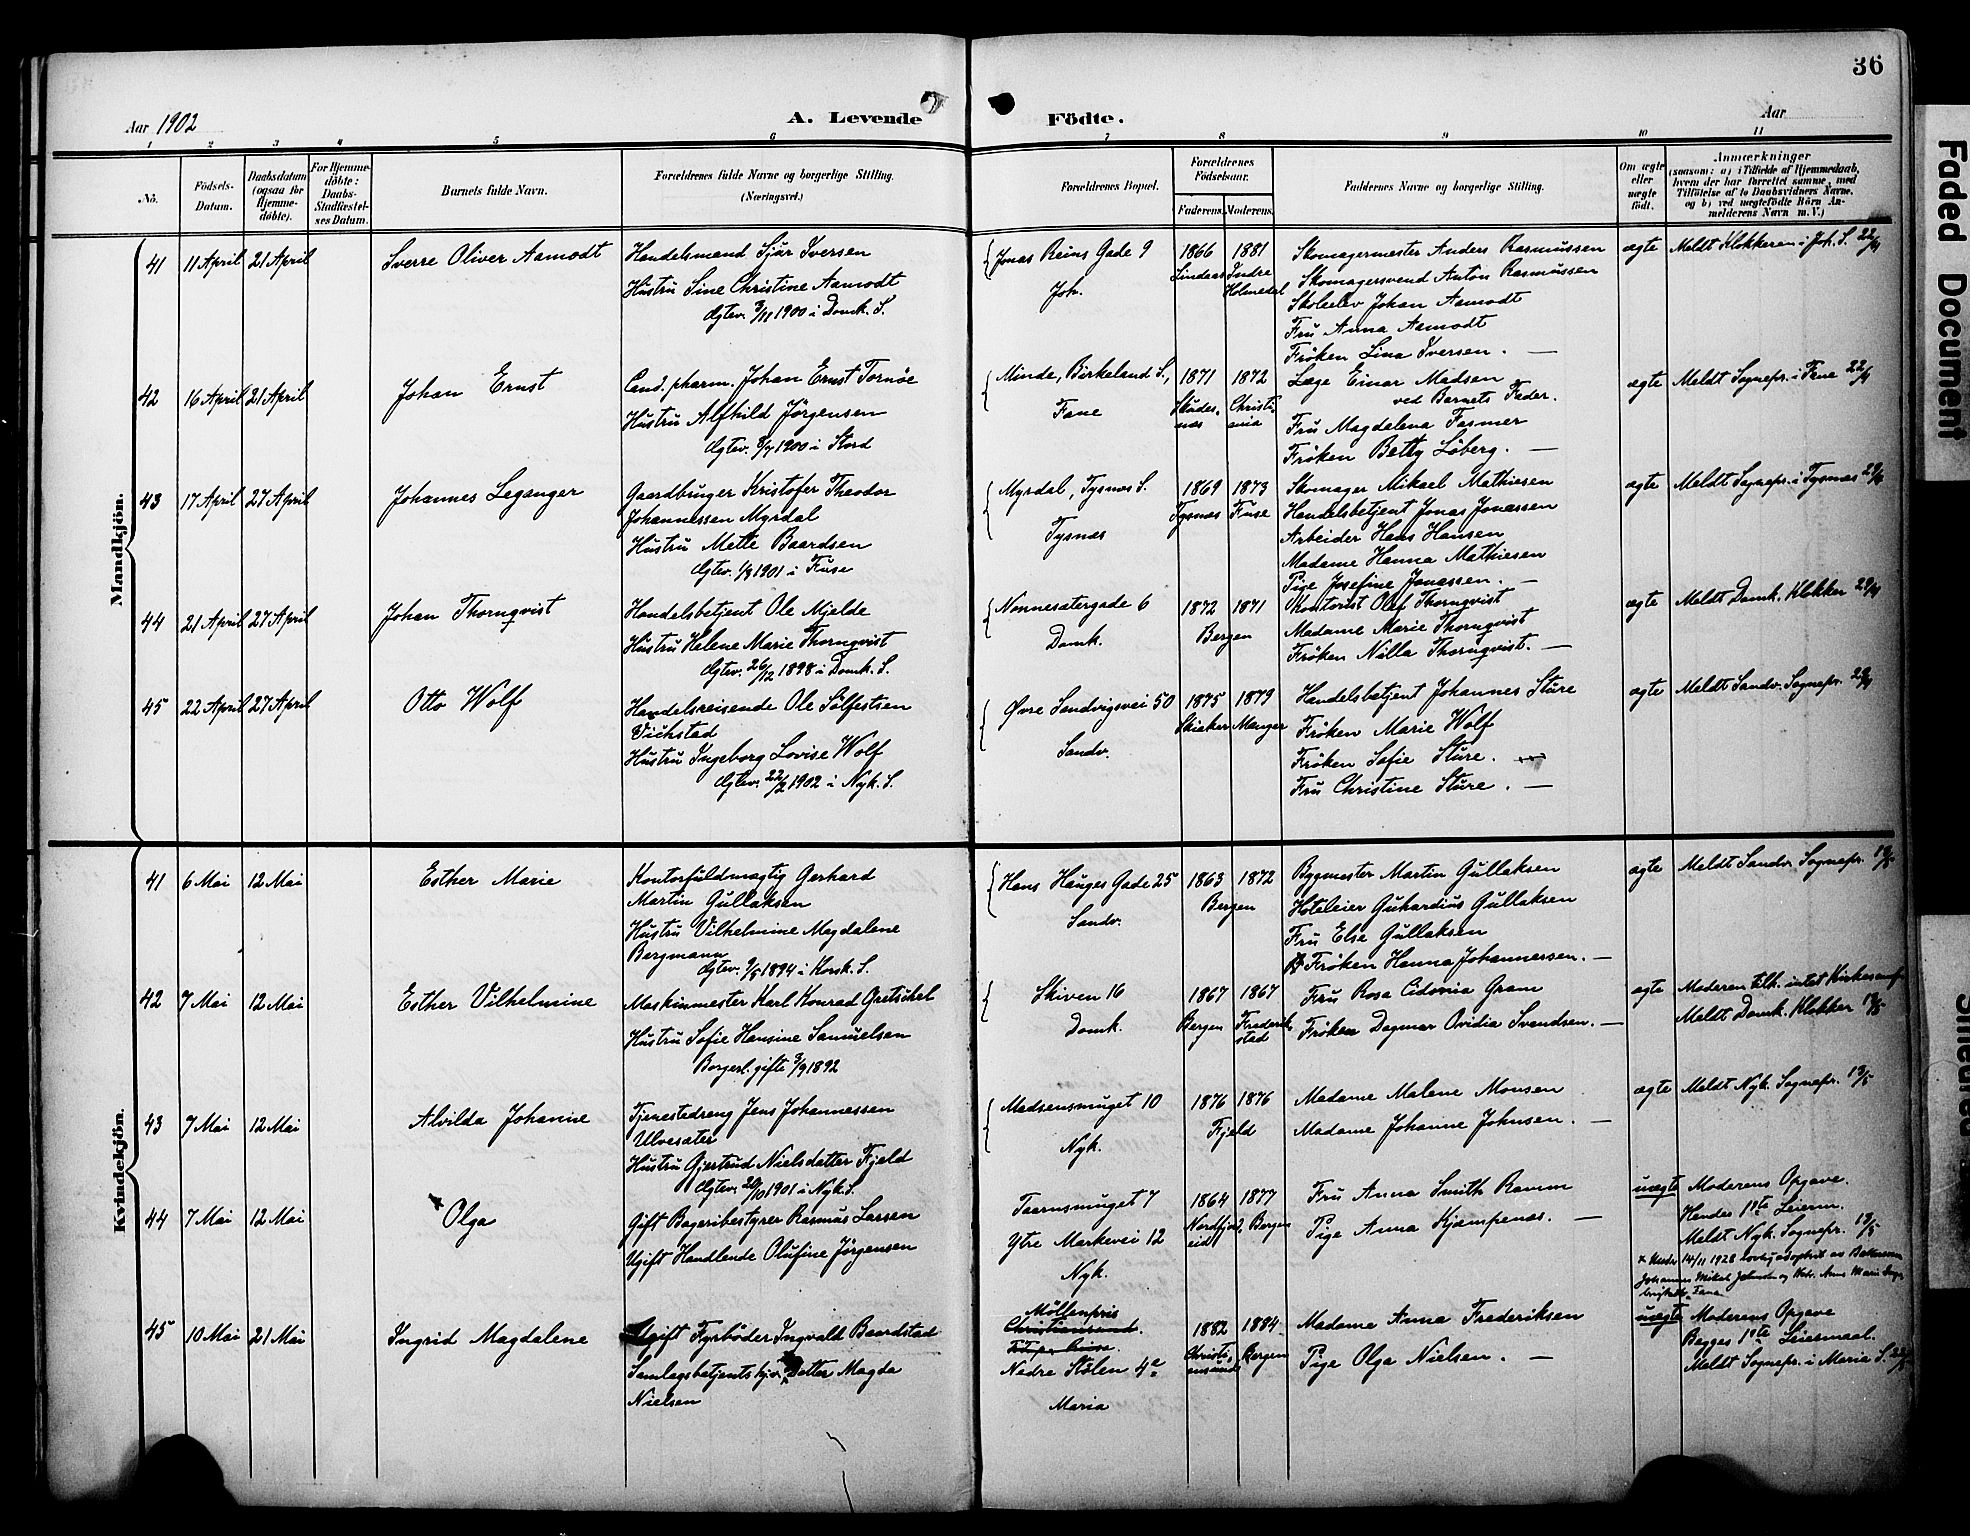 36
Aar 1902
A. Levende Födte.
Aar
1 2 3 4 5 6 7 8 9 10 11
No.
Födsels-Datum.
Daabsdatum (ogsaa for Hjemme-döbte).
For Hjemme-döbte: Daabs-Stadfæstel-ses Datum.
Barnets fulde Navn.
Forældrenes fulde Navne og borgerlige Stilling.
(Næringsvei.)
Forældrenes Bopæl.
Forældrenes Födselsaar.
Faderens. Moderens.
Faddernes Navne og borgerlige Stilling.
Om ægte eller uægte født.
Anmærkninger
(saasom: a) i Tilfælde af Hjemmedaab, hvem der har forrettet samme, med Tilföielse af to Daabsvidners Navne, og b) ved uægtefödte Börn An-melderens Navn m. V.)
Mandkjön.
41 11 April 21 April Sverre Oliver Aamodt
Handelsmand Sjur Iversen
Hustru Sine Christine Aamodt
Ægtev. 3/11 1900 i Domk. S.
Jonas Reins Gade 9
Joh.
1866 1881
Lindaas Indre Holmedal
Skomagermester Anders Rasmussen
Skomagersvend Anton Rasmussen
Skoleelev Johan Aamodt
Fru Anna Aamodt
Fröken Lina Iversen. —
ægte Meldt Klokkeren i Joh. S. 22/4
42 16 April 21 April Johan Ernst
Cand. pharm. Johan Ernst Tornöe
Hustru Alfhild Jörgensen
Ægtev. 8/7 1900 i Stord
Minde, Birkeland S.,
Fane
1871 1872
Skudes-næs Christi-ania
Læge Einar Madsen
ved Barnets Fader.
Fru Magdalena Fasmer
Fröken Betty Löberg. —
ægte Meldt Sognepr. i Fane 22/4
43 17 April 27 April Johannes Leganger
Gaardbruger Kristofer Theodor
Johannessen Myrdal
Hustru Mette Baardsen
Ægtev. 1/9 1901 i Fuse
Myrdal, Tysnæs S.
Tysnæs
1869 1873
Tysnæs Fuse
Skomager Mikael Mathiesen
Handelsbetjent Jonas Jonassen
Arbeider Hans Hansen
Madame Hanna Mathiesen
Pige Josefine Jonassen. —
ægte Meldt Sognepr. i Tysnæs 29/4
44 21 April 27 April Johan Thornqvist
Handelsbetjent Ole Mjelde
Hustru Helene Marie Thornqvist
Ægtev. 26/12 1898 i Domk. S.
Nonnesætergade 6
Domk.
1872 1871
Bergen
Kontorist Olaf Thornqvist
Madame Marie Thornqvist
Fröken Nilla Thornqvist. —
ægte Meldt Domk. Klokker 29/4
45 22 April 27 April Otto Wolf
Handelsreisende Ole Sölfestsen
Vichstad
Hustru Ingeborg Lovise Wolf
Ægtev. 22/2 1902 i Nyk. S.
Øvre Sandvigsvei 50
Sandv.
1875 1879
Manger
Handelsbetjent Johannes Sture
Fröken Marie Wolf
Fröken Sofie Sture.
Fru Christine Sture. —
ægte Meldt Sandv. Sognepr. 29/4
Kvindekjön.
41 6 Mai 12 Mai Esther Marie
Kontorfuldmægtig Gerhard
Martin Gullaksen
Hustru Vilhelmine Magdalene
Bergmann
Ægtev. 9/5 1894 i Korsk. S.
Hans Hauges Gade 25
Sandv.
1863 1872
Bergen
Bygmester Martin Gullaksen
Hoteleier Gullaksen
Fru Else Gullaksen
Fröken Hanna Johannessen. —
ægte Meldt Sandv. Sognepr. 13/5
42 7 Mai 12 Mai Esther Vilhelmine
Maskinmester Karl Konrad Gretschel
Hustru Sofie Hansine Samuelsen
Borgerl. gifte 3/9 1892
Skiven 16
Domk.
1867 1867
Bergen Frederik-stad
Fru Rosa Cidonia Gram
Fröken Dagmar Ovidia Svendsen. —
ægte Moderen tilh. intet Kirkesamf.
Meldt Domk. Klokker 13/5
43 7 Mai 12 Mai Alvilda Johanne
Tjenestedreng Jens Johannessen
Ulvesæter
Hustru Gjertrud Nielsdatter Fjeld
Ægtev. 20/10 1901 i Nyk. S.
Madsensmuget 10
Nyk.
1876 1876
Fjeld
Madame Malene Monsen
Madame Johanne Johnsen. —
ægte Meldt Nyk. Sognepr. 13/5
44 7 Mai 12 Mai × Olga
Gift Bageribestyrer Rasmus Larsen
Ugift Handlende Olufine Jörgensen
Taarnsmuget 7
Ytre Markevei 12
Nyk.
1864 1877
Nordfjord-eid Bergen
Fru Anna Smith Ramm
Pige Anna Kjæmpenæs. —
uægte Moderens Opgave.
Hendes 1ste Leierm.
Meldt Nyk. Sognepr. 13/5
× Under 14/11 1928 adoptert av
Johannes Mikal Johnsen og Marie
Fana
45 10 Mai 21 Mai Ingrid Magdalene
Ugift Fyrböder Ingvald Baardstad
Samlagsbetjents Datter Magda
Nielsen
Möllenpris
Christianssund.
Nedre Stölen 4a
Maria
1882 1884
Christi-anssund Bergen
Madame Anna Frederiksen
Pige Olga Nielsen. —
uægte Moderens Opgave
Begges 1ste Leiermaal.
Meldt Sognepr. i Maria S. 22/5
Faded Document